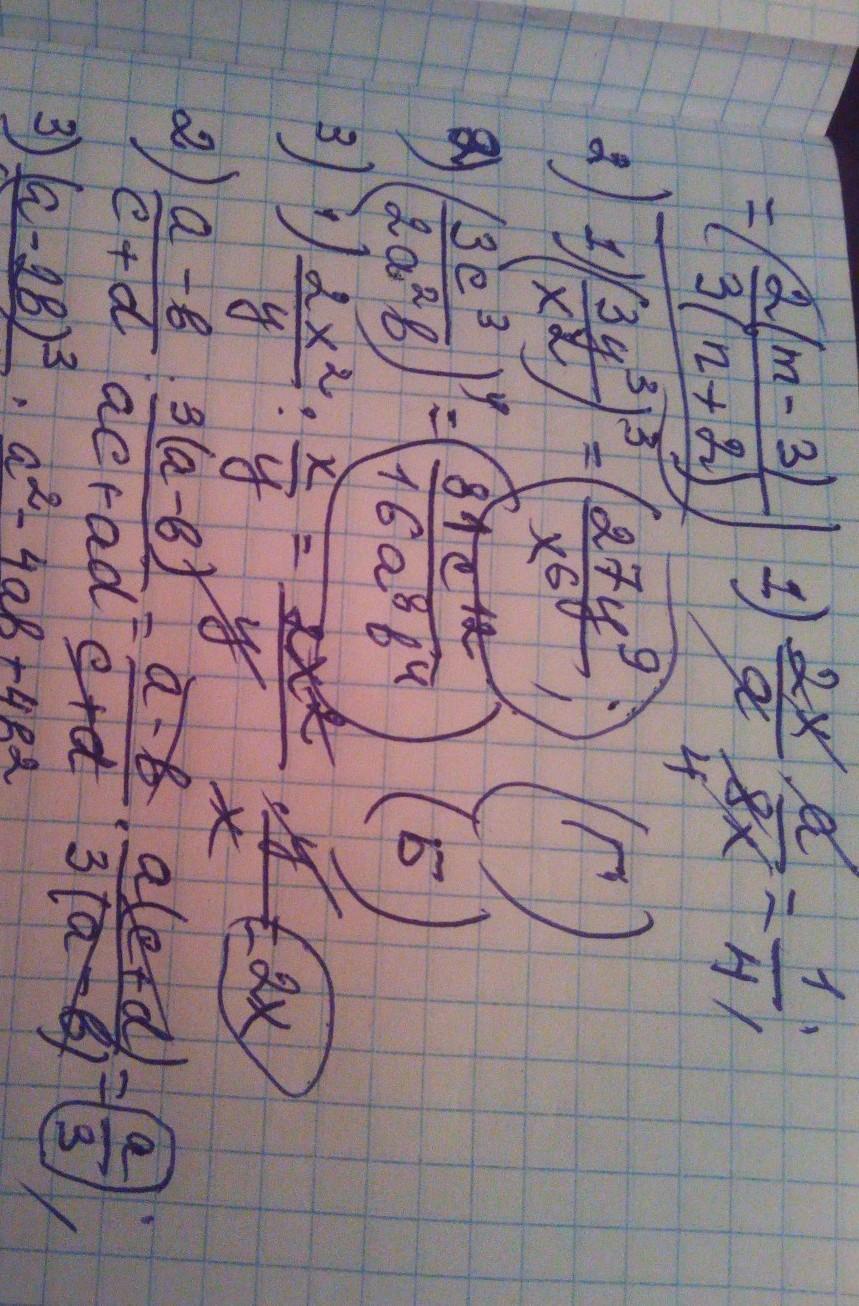 = 2(m-3) / 3(n+2) 1) 2x/a · a/8x = 1/4;
4
2) 1) (3y³/x²)³ = 27y⁹/x⁶; Г
2) (3c³/2a²b)⁴ = 81c¹²/16a⁸b⁴ Б
3) 1) 2x²/y : x/y = 2x²/y · y/x = 2x
2) a-b/c+d : 3(a-b)/ac+ad = a-b/c+d · a(c+d)/3(a-b) = a/3;
3) (a-2b)³ · a²-4ab+4b²